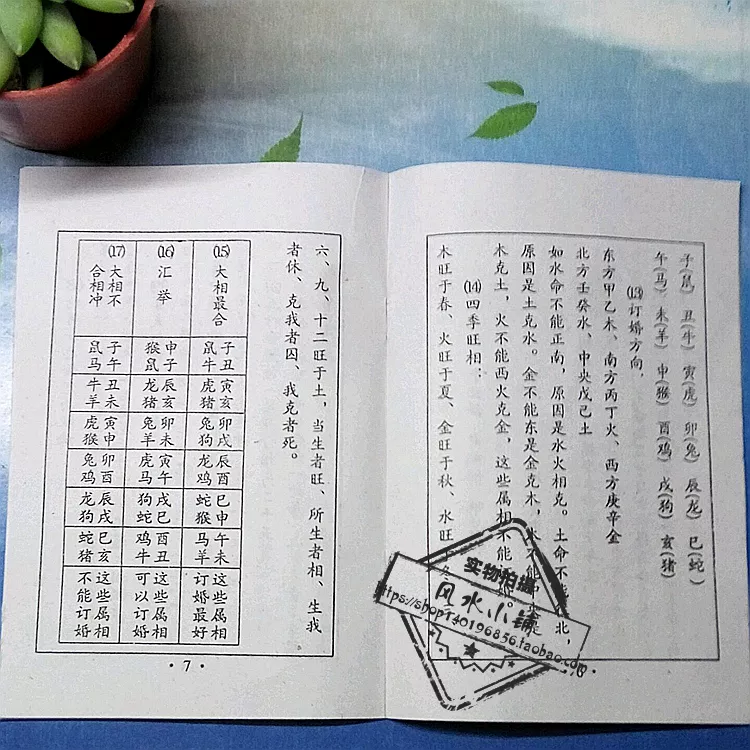 子(鼠) 丑(牛) 寅(虎) 卯(兔) 辰(龙) 巳(蛇)
午(马) 未(羊) 申(猴) 酉(鸡) 戌(狗) 亥(猪)
⒀订婚方向.
东方甲乙木、南方丙丁火、西方庚辛金
北方壬癸水、中央戊己土
如水命不能正南,原因是水火相克。土命不能北,
原因是土克水。金不能东是金克木,木不能是
木克土,火不能西火克金,这些属相不能
⒁四季旺相:
木旺于春、火旺于夏、金旺于秋、水旺
六、九、十二旺于土,当生者旺、所生者相、生我
者休、克我者囚、我克者死。
⒂大相最合
子丑 鼠牛
寅亥 虎猪
卯戌 兔狗
辰酉 龙鸡
巳申 蛇猴
午未 马羊
这些属相订婚最好
⒃汇举
申子 猴鼠
辰亥 龙猪
卯未 兔羊
寅午 虎马
戌巳 狗蛇
酉丑 鸡牛
这些属相可以订婚
⒄大相不合相冲
子午 鼠马
丑未 牛羊
寅申 虎猴
卯酉 兔鸡
辰戌 龙狗
巳亥 蛇猪
这些属相不能订婚
·7·
实物拍摄
风水小铺
https://shop140196856.taobao.com